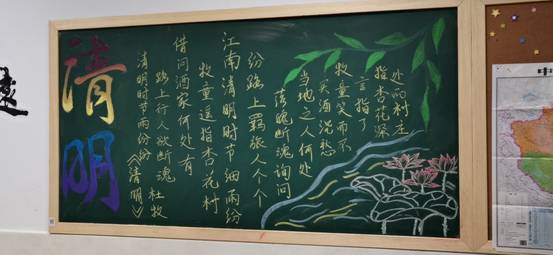 清明
清明时节雨纷纷
《清明》
路上行人欲断魂
杜牧
借问酒家何处有
牧童遥指杏花村
江南清明时节细雨纷
纷路上羁旅人个个
落魄断魂询问
当地之人何处
买酒浇愁
牧童笑而不
言指了
指杏花深
处的村庄
中